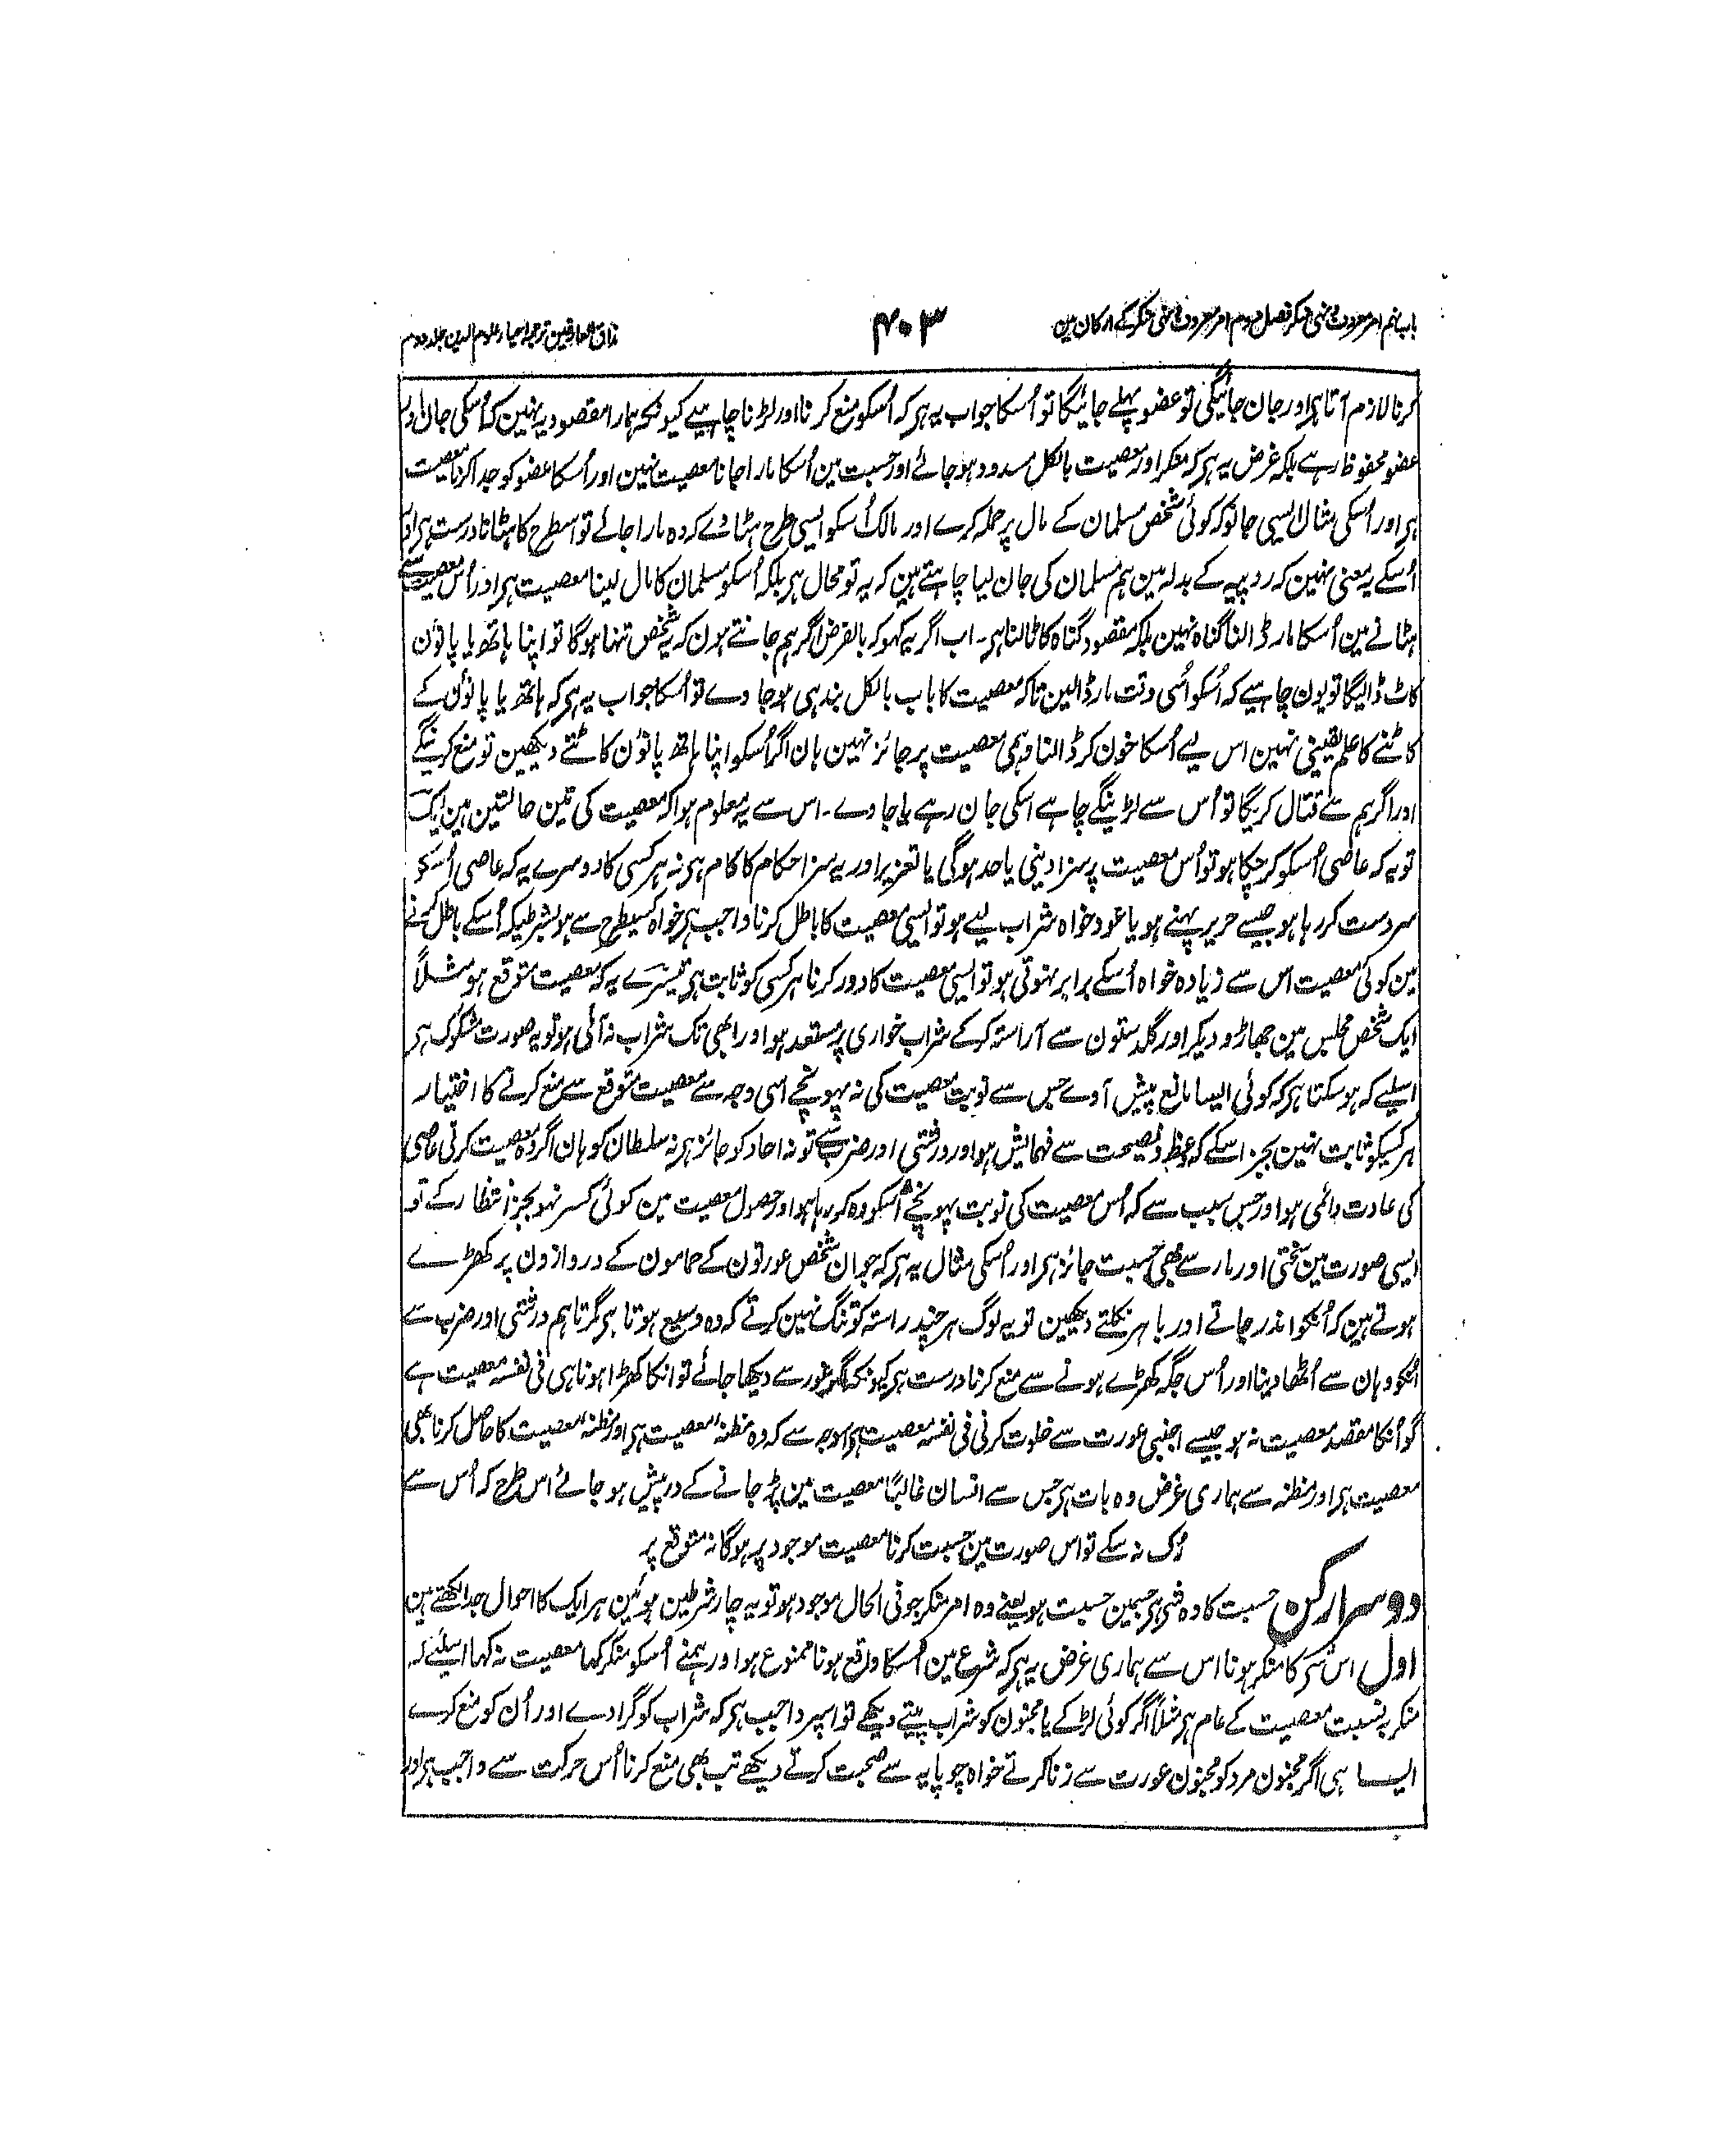 باب نہم امر معروف و نہی منکر فصل دوم امر معروف و نہی منکر کے ارکان مین
۴۰۳
مذاق العارفین ترجمہ احیاء علوم الدین جلد دوم
کرنا لازم آتا ہی اور جان جائیگی تو عضو پہلے جائیگا تو اُسکا جواب یہ ہی کہ اُسکو منع کرنا اور لڑنا چاہیے کیونکہ ہمارا مقصود یہ نہین کہ اُسکی جان اور
عضو محفوظ رہے بلکہ غرض یہ ہی کہ منکر اور معصیت بالکل مسدود ہو جائے اور حسبت مین اُسکا مارا جانا معصیت نہین اور اُسکا عضو کو جدا کرنا معصیت
ہی اور اُسکی مثال ایسی جانو کہ کوئی شخص مسلمان کے مال پر حملہ کرے اور مالک اُسکو ایسی طرح ہٹا دے کہ وہ مارا جائے تو اسطرح کا ہٹانا درست ہی اور
اُسکے یہ معنی نہین کہ روپیہ کے بدلہ مین ہم مسلمان کی جان لیا چاہتے ہین کہ یہ تو محال ہی بلکہ اُسکو مسلمان کا مال لینا معصیت ہی اور اُس معصیت سے
ہٹانے مین اُسکا مار ڈالنا گناہ نہین بلکہ مقصود گناہ کا ٹالنا ہی۔ اب اگر یہ کہو کہ بالفرض اگر ہم جانتے ہون کہ یہ شخص تنہا ہوگا تو اپنا ہاتھ یا پانؤن
کاٹ ڈالیگا تو یون چاہیے کہ اُسکو اُسی وقت مار ڈالین تاکہ معصیت کا باب بالکل بند ہی ہو جاوے تو اُسکا جواب یہ ہی کہ ہاتھ یا پانؤن کے
کاٹنے کا علم یقینی نہین اس لیے اُسکا خون کر ڈالنا وہمی معصیت پر جائز نہین ہان اگر اُسکو اپنا ہاتھ پانؤن کاٹتے دیکھین تو منع کرینگے
اور اگر ہم سے قتال کریگا تو اُس سے لڑینگے چاہے اسکی جان رہے یا جاوے۔ اس سے یہ معلوم ہوا کہ معصیت کی تین حالتین ہین ایک
تو یہ کہ عاصی اُسکو کر چکا ہو تو اُس معصیت پر سزا دینی یا حد ہوگی یا تعزیر اور یہ سزا حکام کا کام ہی نہ ہر کسی کا دوسرے یہ کہ عاصی اُسکو
سردست کر رہا ہو جیسے حریر پہنے ہو یا عود خواہ شراب لیے ہو تو ایسی معصیت کا باطل کرنا واجب ہی خواہ کسیطرح سے ہو بشرطیکہ اُسکے باطل کرنے
مین کوئی معصیت اس سے زیادہ خواہ اُسکے برابر نہوتی ہو تو ایسی معصیت کا دور کرنا ہر کسی کو ثابت ہی تیسرے یہ کہ معصیت متوقع ہو مثلاً
ایک شخص مجلس مین جھاڑو دیکر اور گلدستون سے آراستہ کرکے شراب خواری پر مستعد ہو اور ابھی تک شراب نہ آئی ہو تو یہ صورت مشکوک ہی
اسلیے کہ ہو سکتا ہی کہ کوئی ایسا مانع پیش آوے جس سے نوبت معصیت کی نہ پہونچے اسی وجہ سے معصیت متوقع سے منع کرنے کا اختیار
ہر کسیکو ثابت نہین بجز اسکے کہ وعظ و نصیحت سے فہمایش ہو اور درشتی اور ضرب سے تو نہ احاد کو جائز ہی نہ سلطان کو ہان اگر وہ معصیت کرنی عاصی
کی عادت دائمی ہو اور جس سبب سے کہ اُس معصیت کی نوبت پہونچے اُسکو وہ کر رہا ہو اور حصول معصیت مین کوئی کسر نہو بجز انتظار کے تو
ایسی صورت مین سختی اور مار سے بھی حسبت جائز ہی اور اُسکی مثال یہ ہی کہ جوان شخص عورتون کے حمامون کے دروازون پر کھڑے
ہوتے ہین کہ اُنکو اندر جاتے اور باہر نکلتے دیکھین تو یہ لوگ ہر چند راستہ کو تنگ نہین کرتے کہ وہ وسیع ہوتا ہی مگر تا ہم درشتی اور ضرب سے
اُنکو وہان سے اُٹھا دینا اور اُس جگہ کھڑے ہونے سے منع کرنا درست ہی کیونکہ اگر غور سے دیکھا جائے تو انکا کھڑا ہونا ہی فی نفسہ معصیت ہے
گو اُنکا مقصد معصیت نہ ہو جیسے اجنبی عورت سے خلوت کرنی فی نفسہ معصیت ہی اسوجہ سے کہ وہ مظنہ معصیت ہی اور مظنہ معصیت کا حاصل کرنا بھی
معصیت ہی اور مظنہ سے ہماری غرض وہ بات ہی جس سے انسان غالباً معصیت مین پڑ جانے کے درپیش ہو جائے اس طرح کہ اُس سے
رُک نہ سکے تو اس صورت مین حسبت کرنا معصیت موجود پر ہوگا نہ متوقع پر
دوسرا رکن حسبت کا وہ شی ہی جسمین حسبت ہو یعنے وہ امر منکر جو فی الحال موجود ہو تو یہ چار شرطین ہوئین ہر ایک کا احوال جدا لکھتے ہین
اول اس شی کا منکر ہونا اس سے ہماری غرض یہ ہی کہ شرع مین اُسکا واقع ہونا ممنوع ہو اور ہمنے اُسکو منکر کہا معصیت نہ کہا اسلیے کہ
منکر بہ نسبت معصیت کے عام ہی مثلاً اگر کوئی لڑکے یا مجنون کو شراب پیتے دیکھے تو اسپر واجب ہی کہ شراب کو گرا دے اور اُن کو منع کرے
ایسا ہی اگر مجنون مرد کو مجنون عورت سے زنا کرتے خواہ چوپایہ سے صحبت کرتے دیکھے تب بھی منع کرنا اُس حرکت سے واجب ہی اور